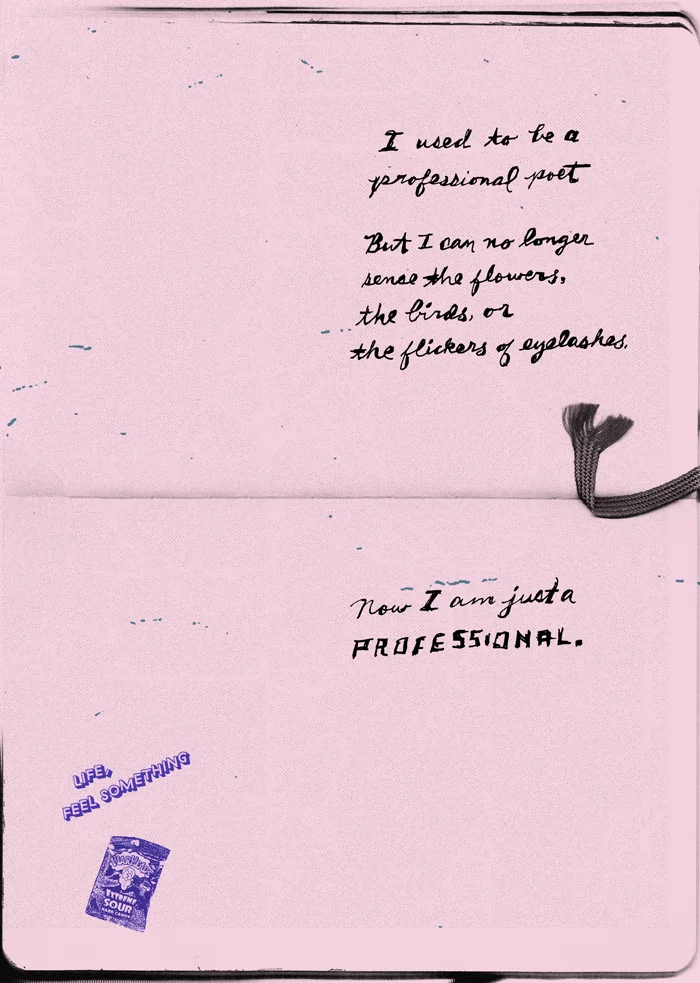 I used to be a
professional poet
But I can no longer
sense the flowers,
the birds, or
the flickers of eyelashes.
Now I am just a
PROFESSIONAL.
LIFE,
FEEL SOMETHING
WARHEADS
EXTREME
SOUR
HARD CANDY